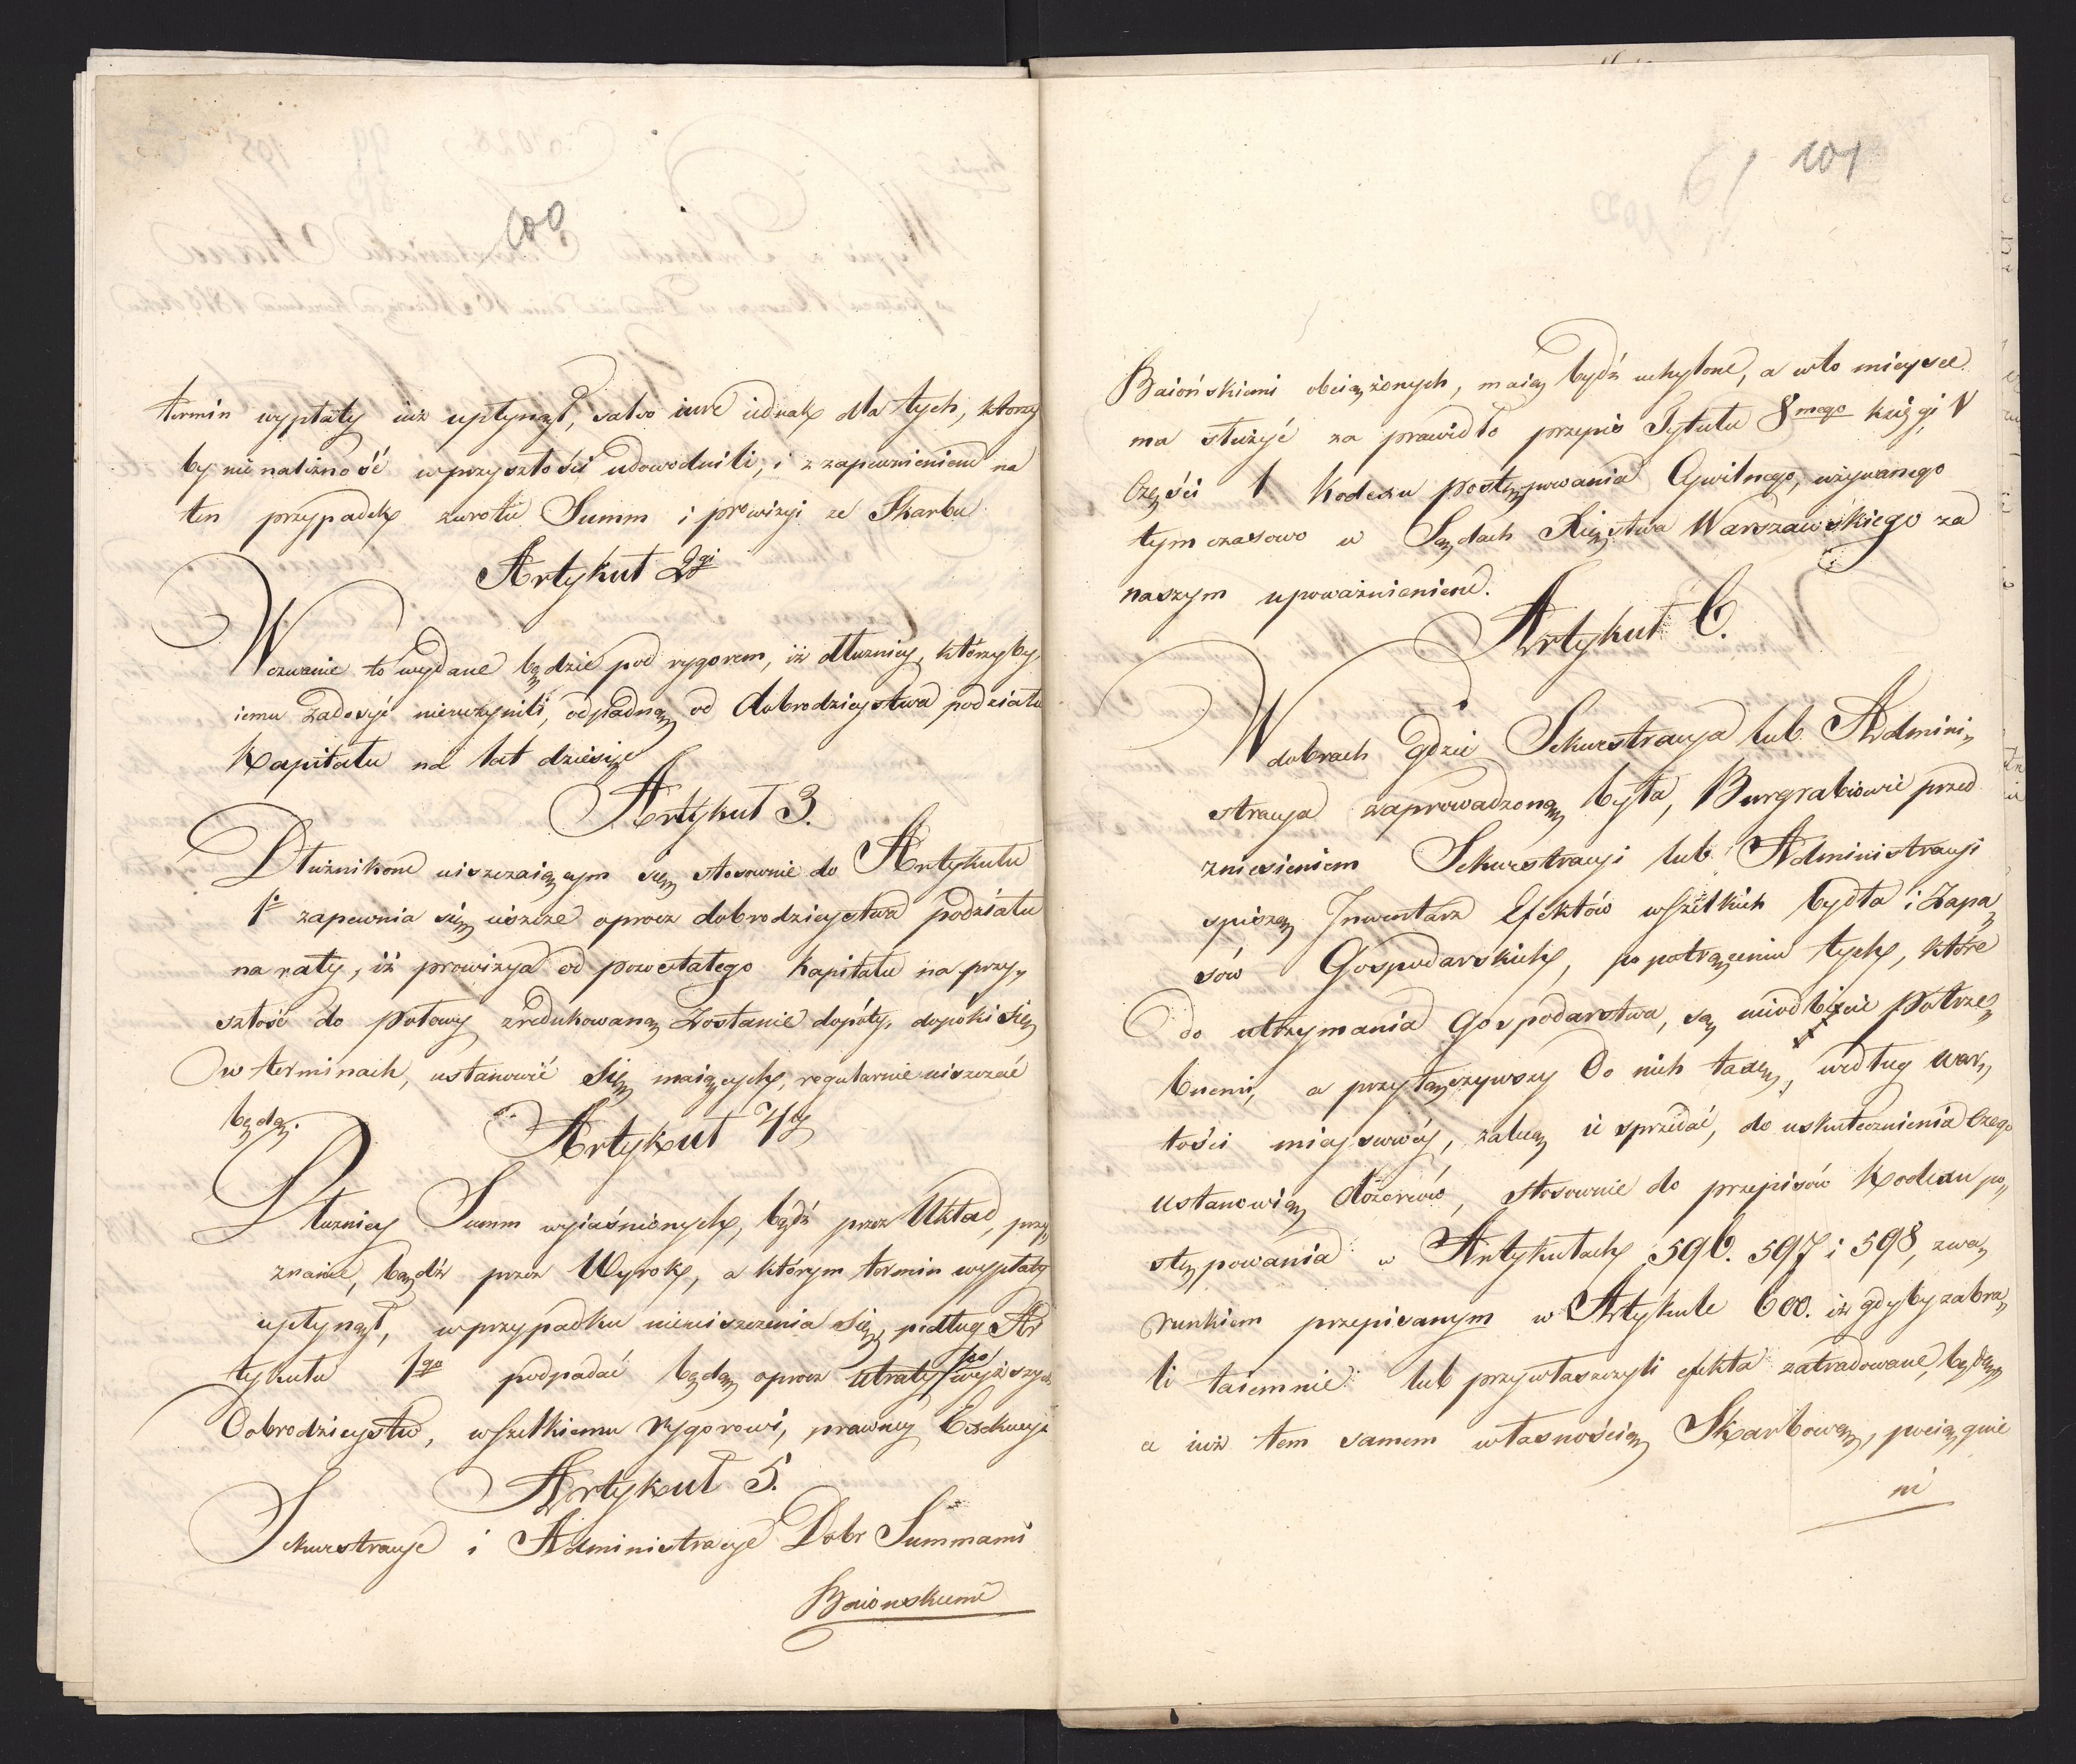 100
termin wypłaty iuż upłynął, salvo iure iednak dla tych, ktorzy
by nienależność wprzyszłości udowodnili, i z zapewnieniem na
ten przypadek zwrotu Summ i prowizyi ze Skarbu
Artykuł 2gi
Wezwanie to wydane będzie pod rygorem, iż dłużnicy, którzyby
iemu Zadosyć nieuczynili, odpadną od dobrodzieystwa podziału
Kapitału na lat dziesięć
Artykuł 3.
Dłużnikom uiszczaiącym się stosownie do Artykułu
1o zapewnia się ieszcze oprocz dobrodzieystwa podziału
na raty, iż prowizya od pozostałego Kapitału na przy„
szłość do połowy zredukowaną Zostanie dopóty, dopóki się
w terminach, ustanowić się maiących, regularnie uiszczać
będą.
Artykuł 4ty
Dłużnicy Summ wyiaśnionych, bądź przez Układ, przy„
znanie, bądź przez Wyrok, a którym termin wypłaty
upłynął, wprzypadku nieuiszczenia się, podług Ar
tykułu 1go podpadać będą oprocz utraty powyższych
Dobrodzieystw, wszelkiemu rygorowi, prawney Exekucyi
Artykuł 5.
Sekwestracye i Administracye Dobr Summami
Baionskiemi
101
Baiońskiemi obciążonych, maią bydź uchylone, a wto mieysce
ma służyć za prawidło przepis Tytułu 8mego księgi V
Części 1 Kodexu postępowania Cywilnego, używanego
tymczasowo w Sądach Xięstwa Warszawskiego za
naszym upoważnieniem.
Artykuł 6.
W dobrach gdzie Sekwestracya lub Admini„
stracya zaprowadzoną była, Burgrabiowie przed
zniesieniem Sekwestracyi lub Administracyi
spiszą Inwentarz Efektów wszelkich bydła i Zapa„
sów Gospodarskich, po potrąceniu tych, które
do utrzymania Gospodarstwa, są nieodbicie potrze„
bnemi, a przyłączywszy do nich taxę, według war„
tości mieyscowéy, zalecą ie sprzedać, do uskutecznienia czego
ustanowią dozorców, stosownie do przepisów Kodexu po„
stępowania w Artykułach 596. 597 i 598, zwa„
runkiem przepisanym w Artykule 600. iż gdyby zabra„
li taiemnie lub przywłaszczyli efekta zatradowane, będące
a iuż tem samem własnością Skarbową, pociągnie
ni